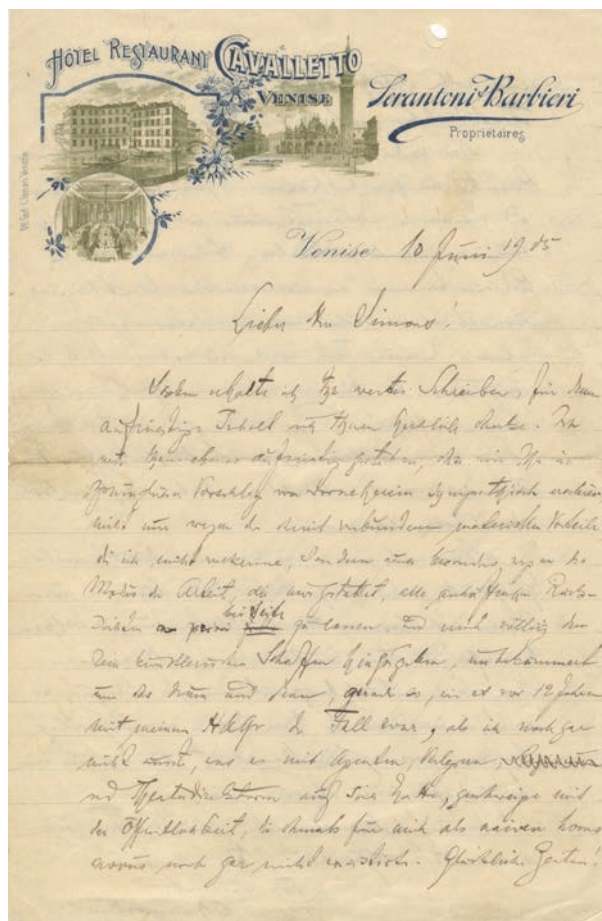 HÔTEL RESTAURANT CAVALLETTO
VENISE
Serantoni & Barbieri
Propriétaires
Venise 10 Juni 1905
Lieber Herr Simons!
Soeben erhalte ich Ihr wertes Schreiben, für dessen
aufrichtigen Inhalt ich Ihnen herzlich danke.
mir Ihr in
von vorneherein sympathisch
nicht nur wegen der damit verbundenen materiellen Vorteile
die ich nicht verkenne, sondern ganz besonders wegen des
Modus der Arbeit, der mir gestattet, alle Rück-
bei Seite zu lassen und mich völlig dem
rein künstlerischen Schaffen hinzugeben, unbekümmert
um das drum und dran, gerade so, wie es vor 12 Jahren
mit meinem der Fall war, als ich noch gar
nicht wusste, was es mit Agenten, Verlegern,
und Theaterdirektoren auf sich hatte, geschweige mit
der Öffentlichkeit, die damals für mich als naiven homo
novus noch gar nicht existirte. Glückliche Zeiten!